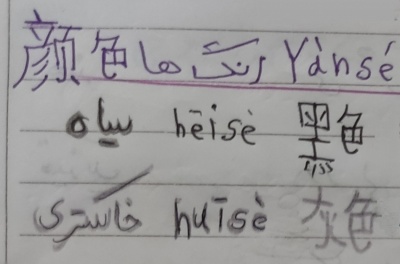 颜色 رنگ ها Yànsé
سیاه hēisè 黑色
خاکستری huīsè 灰色